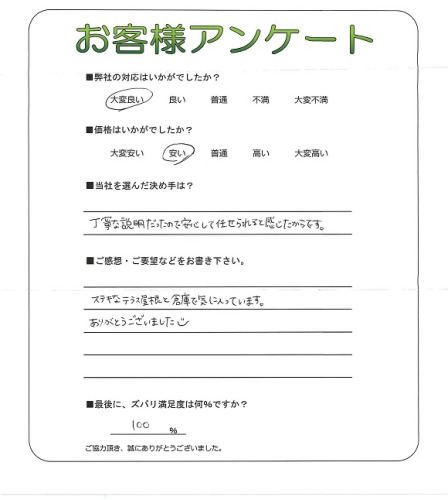 お客様アンケート
■弊社の対応はいかがでしたか?
大変良い 良い 普通 不満 大変不満
■価格はいかがでしたか?
大変安い 安い 普通 高い 大変高い
■当社を選んだ決め手は?
丁寧な説明だったので安心して任せられると感じたからです。
■ご感想・ご要望などをお書き下さい。
ステキなテラス屋根と倉庫で気に入っています。
ありがとうございました
■最後に、ズバリ満足度は何%ですか?
100 %
ご協力頂き、誠にありがとうございました。